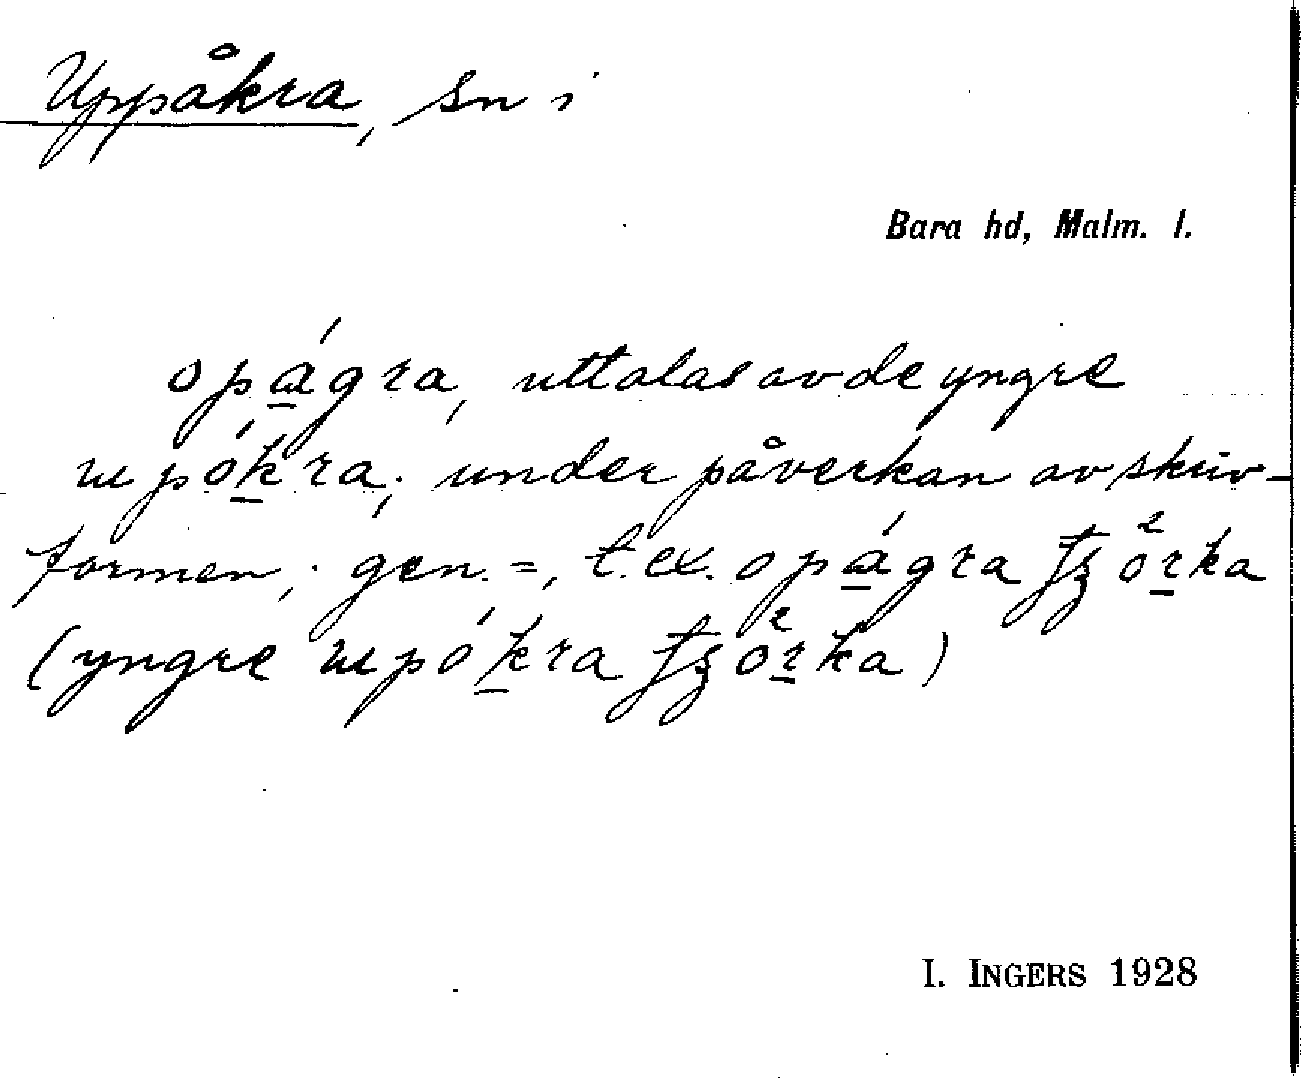 Uppåkra, sn i
Bara hd, Malm. l.
opágra, uttalas av de yngre
upókra; under påverkan av skriv-
formen; gen. =, t. ex. opágra
(yngre upókra
I. INGERS 1928